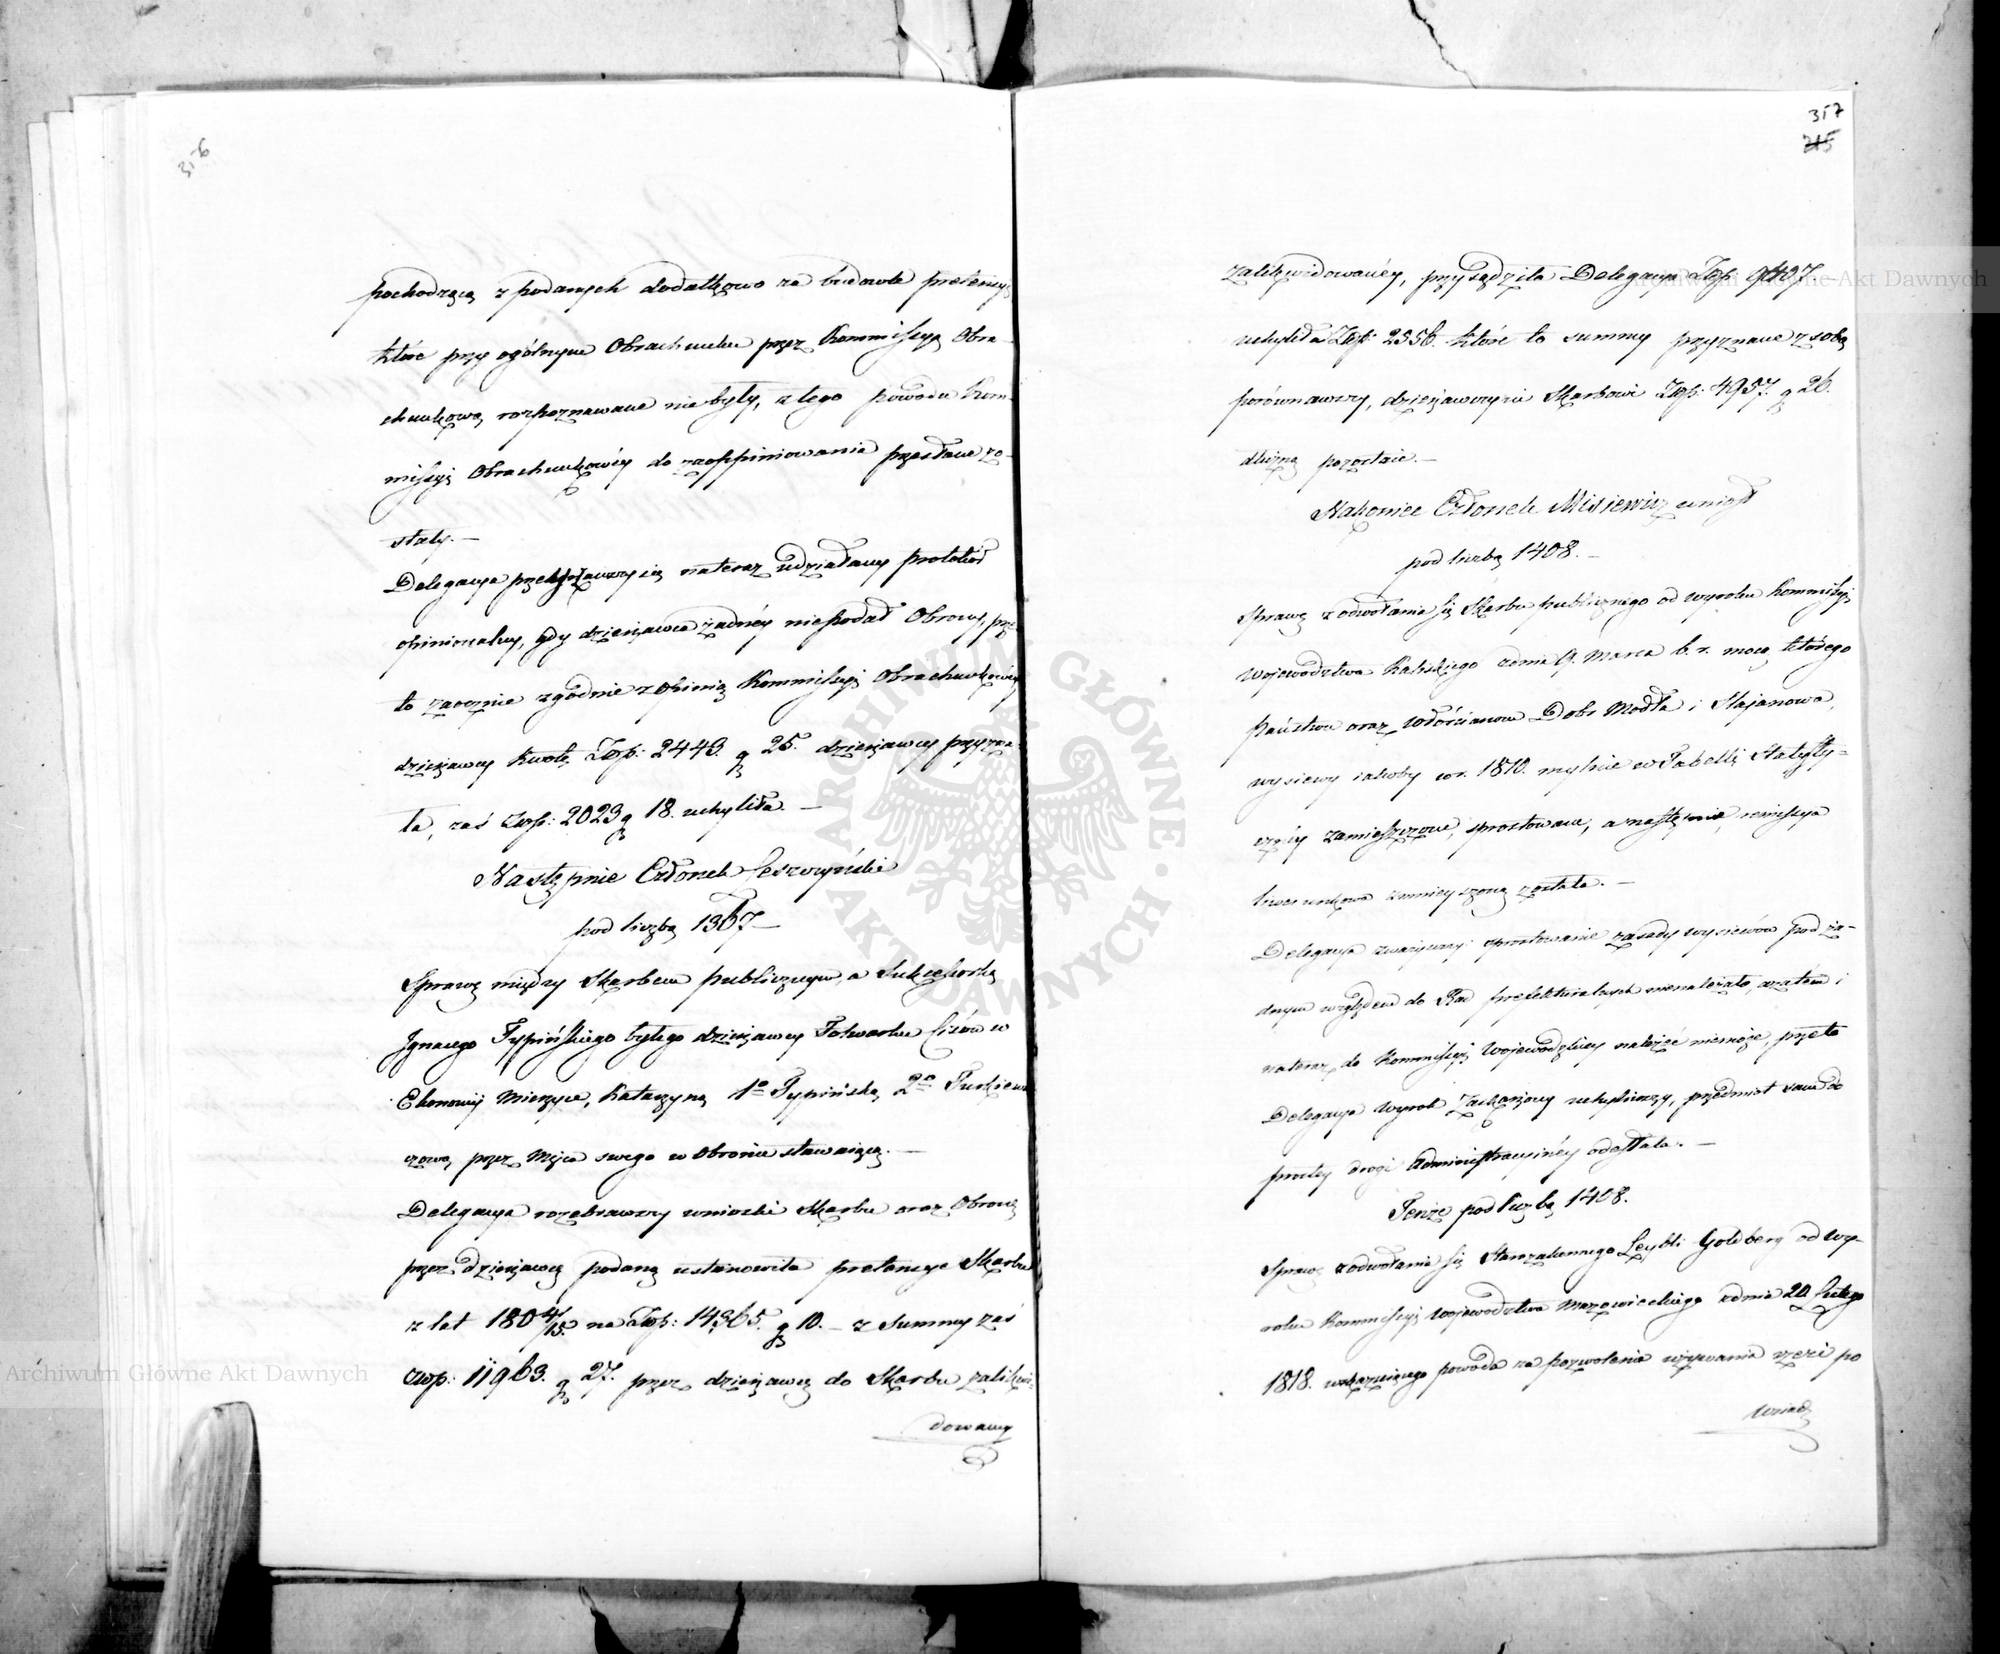 316
pochodzącą z podanych dodatkowo za budowle pretensyi
które przy ogólnym Obrachunku przez Kommissyą Obra-
chunkową rozpoznawane nie były, z tego powodu Kom-
missyi Obrachunkowéy do zaopiniowania przesłane zo-
stały.—
Delegacya przekonawszy się nateraz udziałany protokół
opinionalny, gdy dzierżawca żadnéy niepodał Obrony, prze-
to zaocznie zgodnie z opinią Kommissyi Obrachunkowéy
dzierżawcy kwotę Złp: 2443. g 25. dzierżawcy przyzna-
ła, zaś Złp: 2023 g 18. uchyliła.—
Następnie Członek Leszczyński
pod liczbą 1367—
Sprawę między Skarbem publicznym, a Sukcessorką
Ignacego Typińskiego byłego dzierżawcy Folwarku Lisów w
Ekonomij Mierzyce, Katarzyną 1º Typińską 2º Turkiewi-
czową przez Męża swego w obronie stawaiącą.—
Delegacya rozebrawszy wnioski Skarbu oraz Obronę
przez dzierżawcę podaną ustanowiła pretensye Skarbu
z lat 1804/15. na Złp: 14,365. g 10.— z Summy zaś
Złp: 11963. g 27. przez dzierżawcę do Skarbu zalikwi-
dowaney
317
215
zalikwidowanéy, przysądziła Delegacya Złp: 9407—
uchyliła Złp: 2556. które to summy przyznane z sobą
porównawszy, dzierżawczyni Skarbowi Złp: 4957. g 26.
dłużną pozostaie.—
Nakoniec Członek Misiewicz wniósł
pod liczbą 1408.—
Sprawę z odwołania się Skarbu publicznego od wyroku Kommissyi
Województwa Kaliskiego z dnia 9. Marca b. r. mocą którego
Państwu oraz Włościanom Dobr Modła i Stajanowa,
wysiewy w r. 1810. mylnie w Tabelli Statysty-
cznéy zamieszczone, sprostowane, a następnie remissya
została.—
Delegacya zważywszy: sprostowanie zasady wysiewów pod ża-
dnym względem do Rad prefekturalnych nienależało, a zatem i
nateraz do Kommissyi Wojewódzkiey należeć niemoże, przeto
Delegacya Wyrok zaskarżony uchyliwszy, przedmiot sam do
prostey drogi Administracyinéy odesłała.—
Tenże pod liczbą 1408.
Sprawę z odwołania się Starozakonnego Leybki Goldberg od wy-
roku Kommissyi Województwa Mazowieckiego z dnia 20 Lutego
1818. wskazuiącego powoda za pozwolenie używania rzezi po
Archiwum Główne Akt Dawnych
Archiwum Główne Akt Dawnych
ARCHIWUM GŁÓWNE AKT DAWNYCH